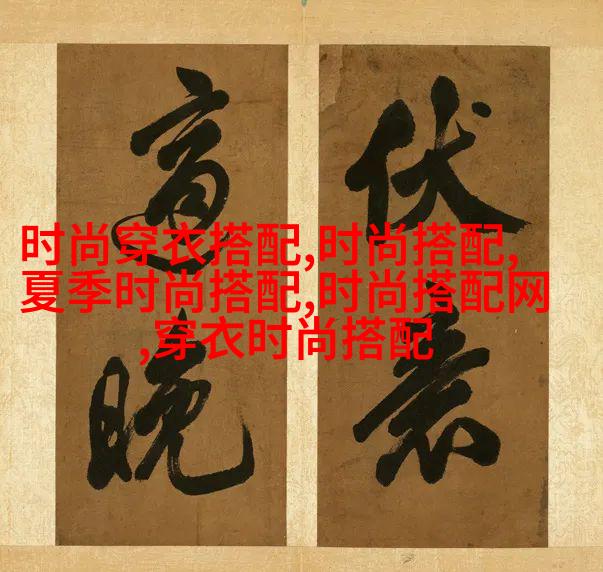 时尚穿衣搭配,时尚搭配,
夏季时尚搭配,时尚搭配网
,穿衣时尚搭配
伏
晚